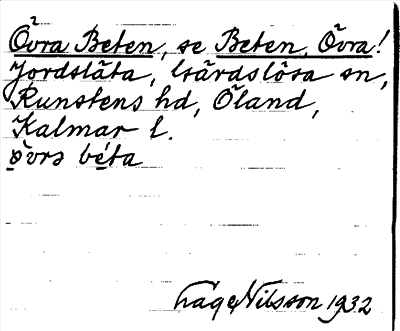 Övra Beten, se Beten, Övra!
Jordsläta, Gärdslösa sn,
Runstens hd, Öland,
Kalmar l.
övrs béta
Hage Nilsson 1932